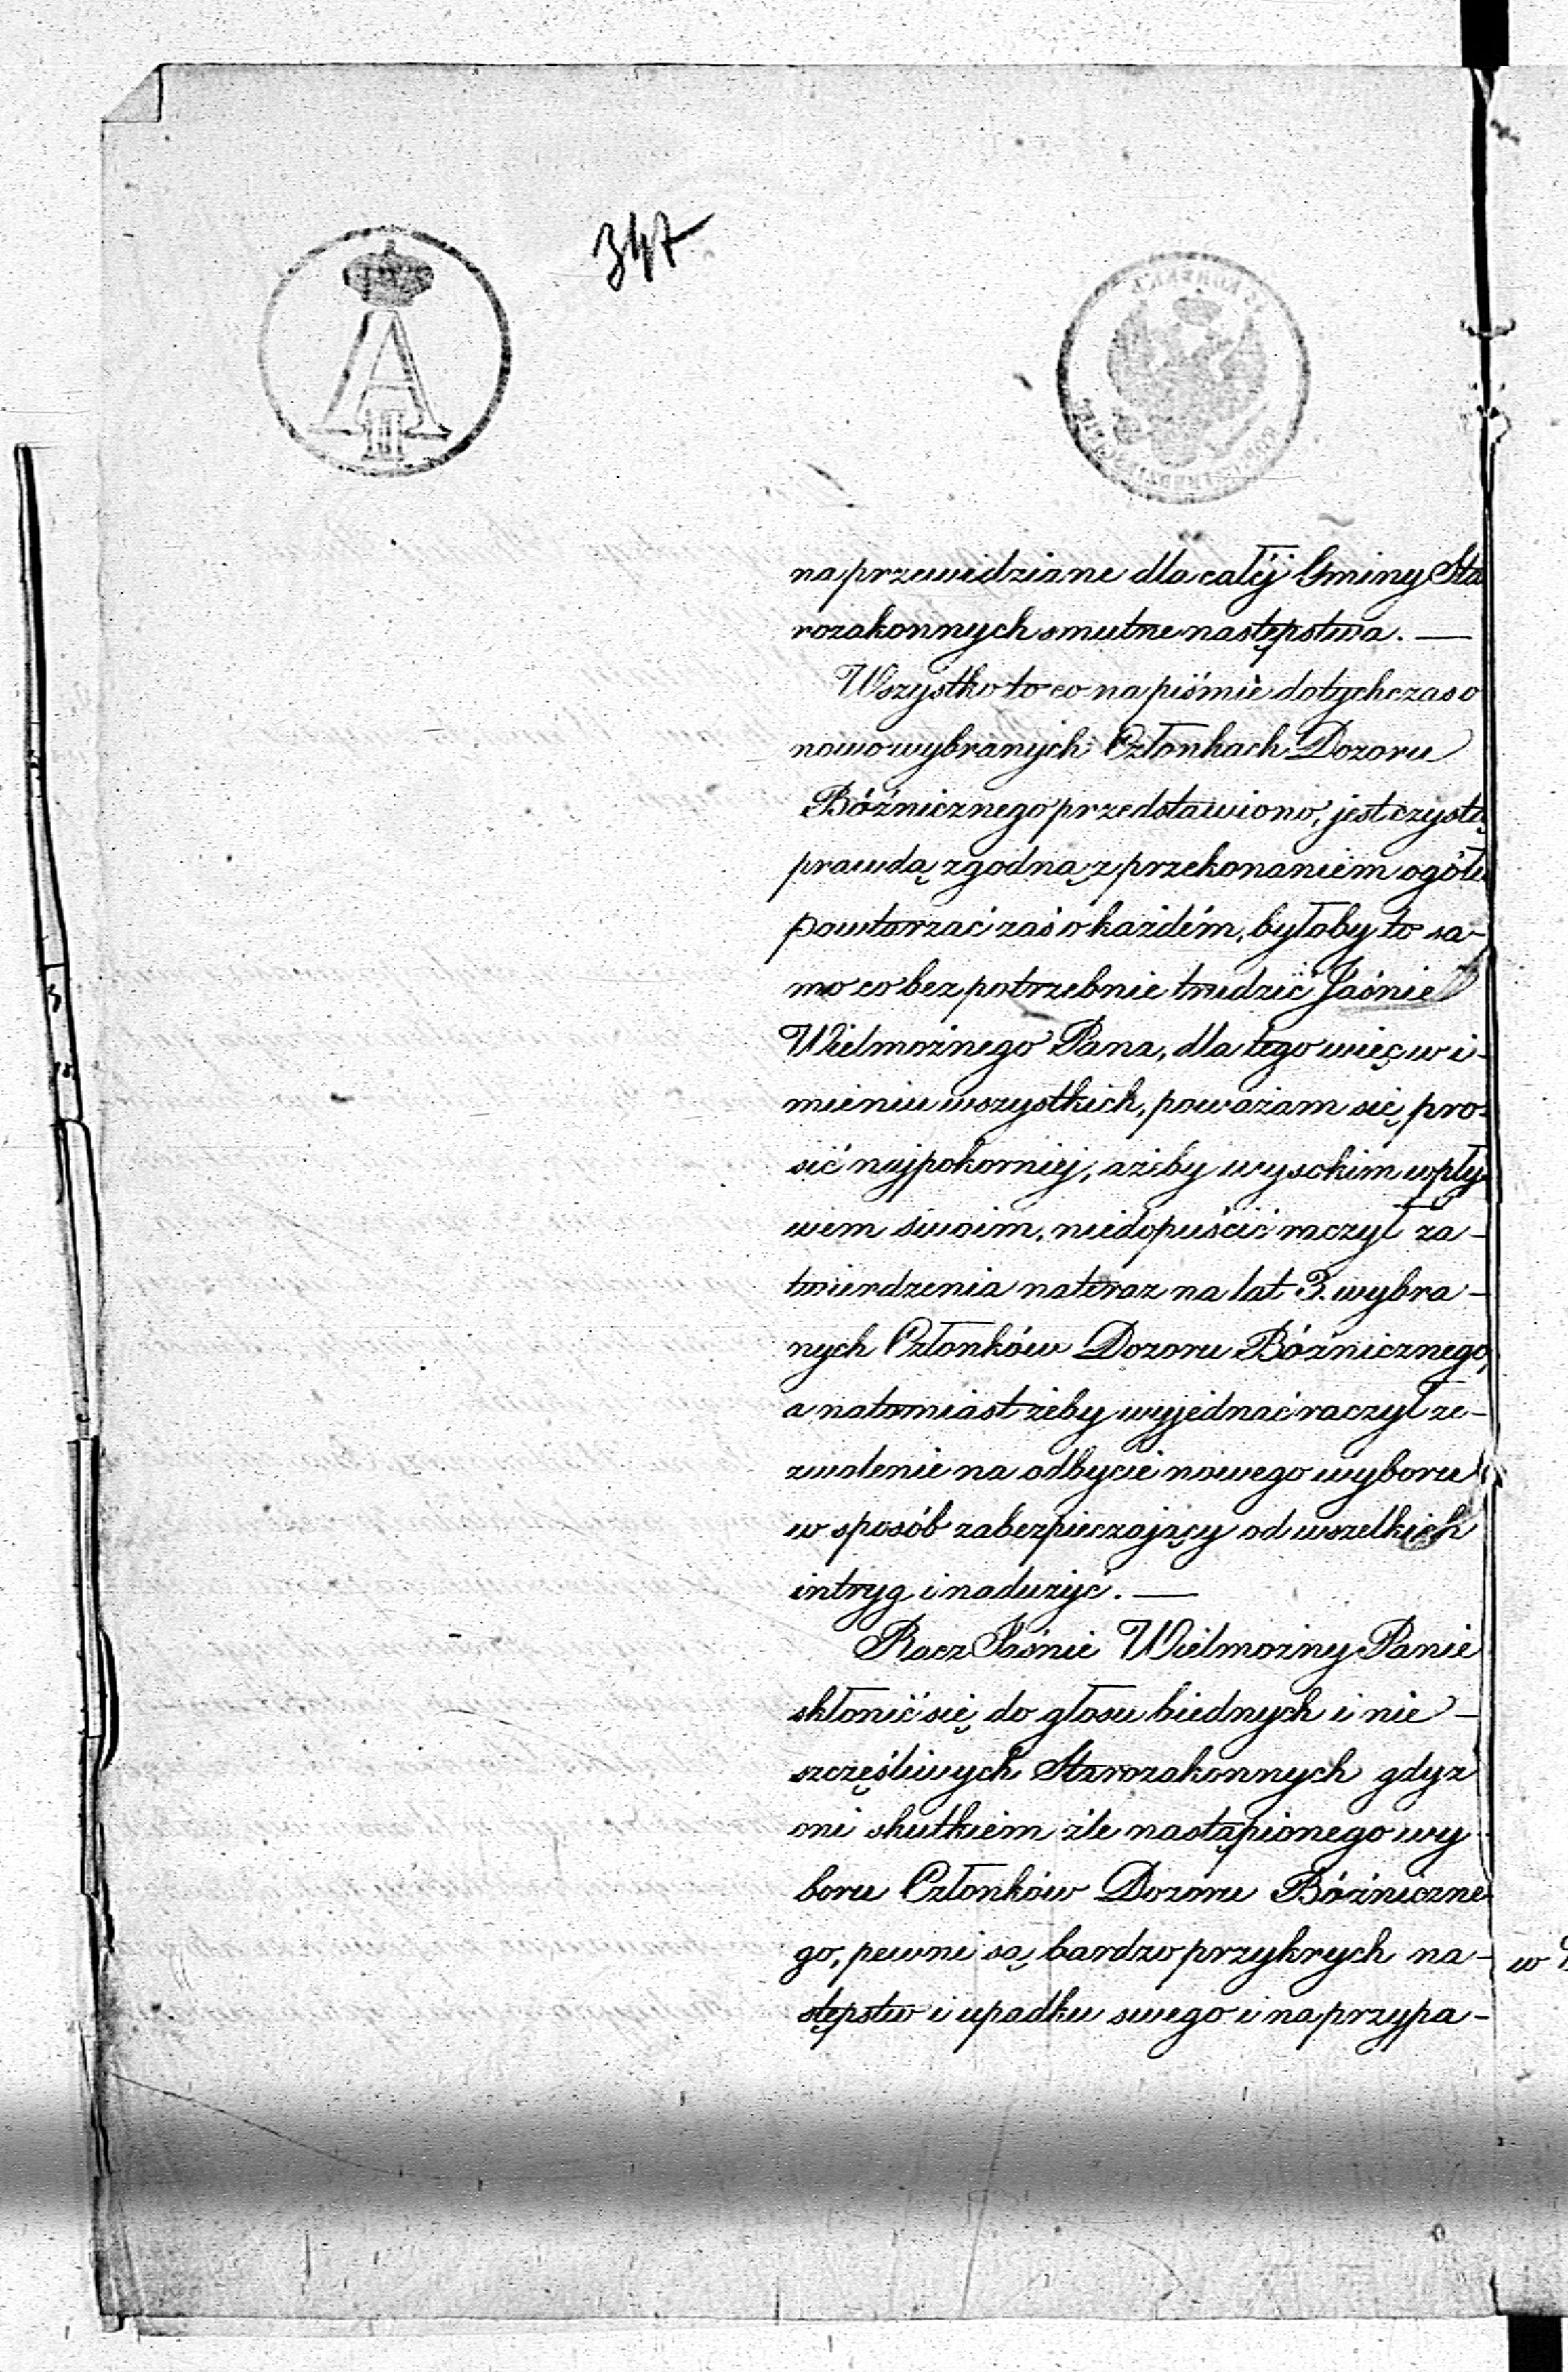 347
A
II
na przewidziane dla całéj Gminy Sta
rozakonnych smutne następstwa. —
Wszystko to co na piśmie dotychczas o
nowo wybranych Członkach Dozoru
Bóźnicznego przedstawiono, jest czystą
prawdą zgodną z przekonaniem ogółu
powtarzać zaś o każdém, byłoby to sa-
mo co bez potrzebnie trudzić Jaśnie
Wielmożnego Pana, dla tego więc w i-
mieniu wszystkich, poważam się pro-
sić najpokorniej, ażeby wysokim wpły
wem swoim, niedopuścić raczył za-
twierdzenia nateraz na lat 3. wybra-
nych Członków Dozoru Bóźnicznego,
a natomiast żeby wyjednać raczył ze-
zwolenie na odbycie nowego wyboru
w sposób zabezpieczający od wszelkich
intryg i nadużyć. —
Racz Jaśnie Wielmożny Panie
skłonić się do głosu biednych i nie-
szczęśliwych Starozakonnych gdyż
oni skutkiem źle nastąpionego wy-
boru Członków Dozoru Bóźniczne
go, pewni są bardzo przykrych na-
stępstw i upadku swego i na przypa-
w